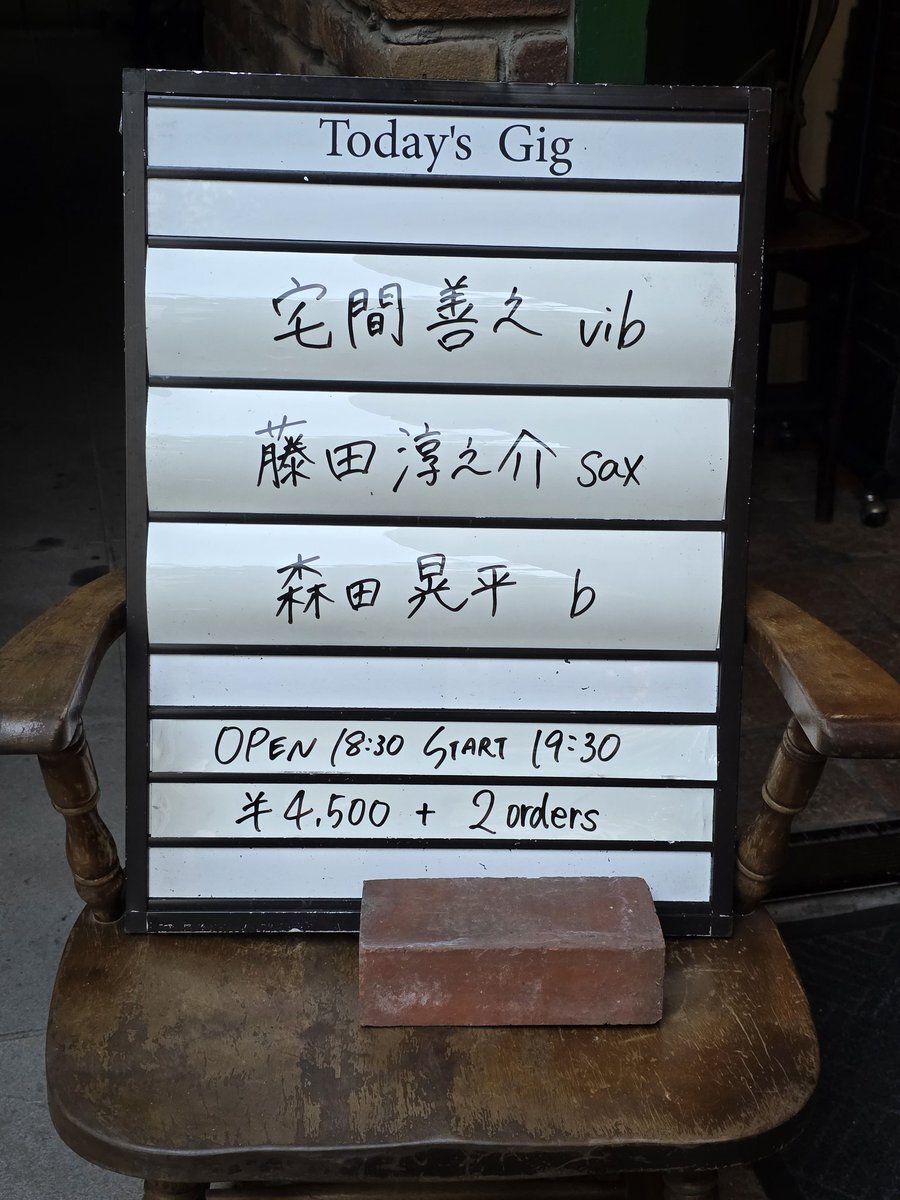 Today's Gig
宅間善之 vib
藤田淳之介 sax
森田晃平 b
OPEN 18:30 START 19:30
¥4,500 + 2 orders